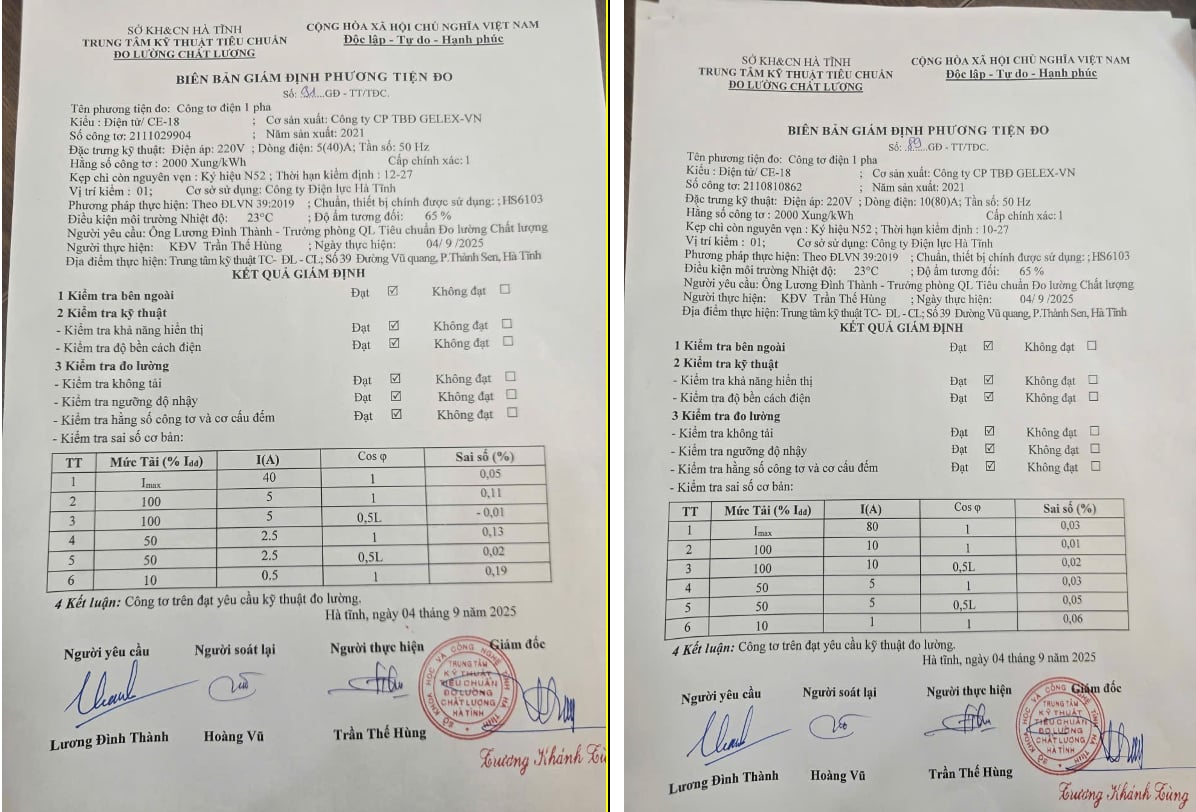 SỞ KH&CN HÀ TĨNH
TRUNG TÂM KỸ THUẬT TIÊU CHUẨN
ĐO LƯỜNG CHẤT LƯỢNG
CỘNG HÒA XÃ HỘI CHỦ NGHĨA VIỆT NAM
Độc lập - Tự do - Hạnh phúc
BIÊN BẢN GIÁM ĐỊNH PHƯƠNG TIỆN ĐO
Số: ...GĐ - TT/TĐC.
Tên phương tiện đo: Công tơ điện 1 pha
Kiểu : Điện tử/ CE-18 ; Cơ sản xuất: Công ty CP TBĐ GELEX-VN
Số công tơ: 2111029904 ; Năm sản xuất: 2021
Đặc trưng kỹ thuật: Điện áp: 220V ; Dòng điện: 5(40)A; Tần số: 50 Hz
Hằng số công tơ : 2000 Xung/kWh Cấp chính xác: 1
Kẹp chì còn nguyên vẹn : Ký hiệu N52 ; Thời hạn kiểm định : 12-27
Vị trí kiểm : 01; Cơ sở sử dụng: Công ty Điện lực Hà Tĩnh
Phương pháp thực hiện: Theo ĐLVN 39:2019 ; Chuẩn, thiết bị chính được sử dụng: ;HS6103
Điều kiện môi trường Nhiệt độ: 23°C ; Độ ẩm tương đối: 65 %
Người yêu cầu: Ông Lương Đình Thành - Trưởng phòng QL Tiêu chuẩn Đo lường Chất lượng
Người thực hiện: KĐV Trần Thế Hùng ; Ngày thực hiện: 04/ 9 /2025
Địa điểm thực hiện: Trung tâm kỹ thuật TC- ĐL - CL; Số 39 Đường Vũ quang, P.Thành Sen, Hà Tĩnh
KẾT QUẢ GIÁM ĐỊNH
1 Kiểm tra bên ngoài Đạt ☑ Không đạt ☐
2 Kiểm tra kỹ thuật
- Kiểm tra khả năng hiển thị Đạt ☑ Không đạt ☐
- Kiểm tra độ bền cách điện Đạt ☑ Không đạt ☐
3 Kiểm tra đo lường
- Kiểm tra không tải Đạt ☑ Không đạt ☐
- Kiểm tra ngưỡng độ nhậy Đạt ☑ Không đạt ☐
- Kiểm tra hằng số công tơ và cơ cấu đếm Đạt ☑ Không đạt ☐
- Kiểm tra sai số cơ bản:
TT Mức Tải (% Iđd) I(A) Cos φ Sai số (%)
1 Imax 40 1 0,05
2 100 5 1 0,11
3 100 5 0,5L - 0,01
4 50 2.5 1 0,13
5 50 2.5 0,5L 0,02
6 10 0.5 1 0,19
4 Kết luận: Công tơ trên đạt yêu cầu kỹ thuật đo lường.
Hà tĩnh, ngày 04 tháng 9 năm 2025
Người yêu cầu Người soát lại Người thực hiện Giám đốc
TRUNG TÂM
KỸ THUẬT
TIÊU CHUẨN
ĐO LƯỜNG
CHẤT LƯỢNG
HÀ TĨNH
Lương Đình Thành Hoàng Vũ Trần Thế Hùng
Trương Khánh
SỞ KH&CN HÀ TĨNH
TRUNG TÂM KỸ THUẬT TIÊU CHUẨN
ĐO LƯỜNG CHẤT LƯỢNG
CỘNG HÒA XÃ HỘI CHỦ NGHĨA VIỆT NAM
Độc lập - Tự do - Hạnh phúc
BIÊN BẢN GIÁM ĐỊNH PHƯƠNG TIỆN ĐO
Số: 89 GĐ - TT/TĐC.
Tên phương tiện đo: Công tơ điện 1 pha
Kiểu : Điện tử/ CE-18 ; Cơ sản xuất: Công ty CP TBĐ GELEX-VN
Số công tơ: 2110810862 ; Năm sản xuất: 2021
Đặc trưng kỹ thuật: Điện áp: 220V ; Dòng điện: 10(80)A; Tần số: 50 Hz
Hằng số công tơ : 2000 Xung/kWh Cấp chính xác: 1
Kẹp chì còn nguyên vẹn : Ký hiệu N52 ; Thời hạn kiểm định : 10-27
Vị trí kiểm : 01; Cơ sở sử dụng: Công ty Điện lực Hà Tĩnh
Phương pháp thực hiện: Theo ĐLVN 39:2019 ; Chuẩn, thiết bị chính được sử dụng: ;HS6103
Điều kiện môi trường Nhiệt độ: 23°C ; Độ ẩm tương đối: 65 %
Người yêu cầu: Ông Lương Đình Thành - Trưởng phòng QL Tiêu chuẩn Đo lường Chất lượng
Người thực hiện: KĐV Trần Thế Hùng ; Ngày thực hiện: 04/ 9 /2025
Địa điểm thực hiện: Trung tâm kỹ thuật TC- ĐL - CL; Số 39 Đường Vũ quang, P.Thành Sen, Hà Tĩnh
KẾT QUẢ GIÁM ĐỊNH
1 Kiểm tra bên ngoài Đạt ☑ Không đạt ☐
2 Kiểm tra kỹ thuật
- Kiểm tra khả năng hiển thị Đạt ☑ Không đạt ☐
- Kiểm tra độ bền cách điện Đạt ☑ Không đạt ☐
3 Kiểm tra đo lường
- Kiểm tra không tải Đạt ☑ Không đạt ☐
- Kiểm tra ngưỡng độ nhậy Đạt ☑ Không đạt ☐
- Kiểm tra hằng số công tơ và cơ cấu đếm Đạt ☑ Không đạt ☐
- Kiểm tra sai số cơ bản:
TT Mức Tải (% Iđd) I(A) Cos φ Sai số (%)
1 Imax 80 1 0,03
2 100 10 1 0,01
3 100 10 0,5L 0,02
4 50 5 1 0,03
5 50 5 0,5L 0,05
6 10 1 1 0,06
4 Kết luận: Công tơ trên đạt yêu cầu kỹ thuật đo lường.
Hà tĩnh, ngày 04 tháng 9 năm 2025
Người yêu cầu Người soát lại Người thực hiện Giám đốc
TRUNG TÂM
KỸ THUẬT
TIÊU CHUẨN
ĐO LƯỜNG
CHẤT LƯỢNG
HÀ TĨNH
Lương Đình Thành Hoàng Vũ Trần Thế Hùng
Trương Khánh Tùng